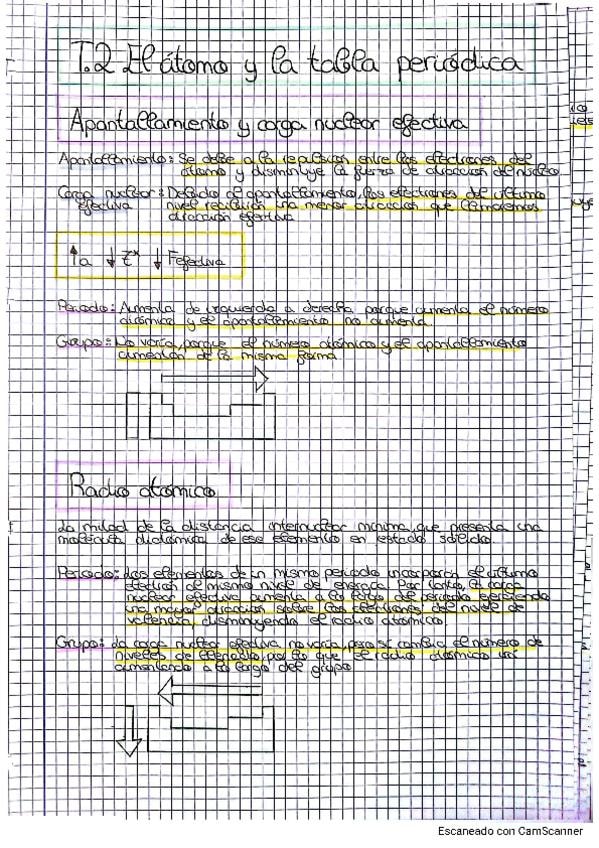 T.2 El átomo y la tabla periódica
Apantallamiento y carga nuclear efectiva
Apantallamiento: Se debe a la repulsión entre los electrones del
átomo y disminuye la fuerza de atracción del núcleo
Carga nuclear: Debido al apantallamiento, los electrones del último
efectiva nivel recibirán una menor atracción que llamaremos
atracción efectiva
↑a ↓Z* ↓Fefectiva
Periodo: Aumenta de izquierda a derecha porque aumenta el número
atómico y el apantallamiento no aumenta.
Grupo: No varía, porque el número atómico y el apantallamiento
aumentan de la misma forma
Radio atómico
La mitad de la distancia internuclear mínima, que presenta una
molécula diatómica de ese elemento en estado sólido.
Periodo: Los elementos de un mismo periodo incorporan el último
electrón al mismo nivel de energía. Por tanto, la carga
nuclear efectiva aumenta a lo largo del periodo ejerciendo
una mayor atracción sobre los electrones del nivel de
valencia, disminuyendo el radio atómico.
Grupo: La carga nuclear efectiva no varía, pero sí cambia el número de
niveles de energía, por lo que el radio atómico irá
aumentando a lo largo del grupo
Escaneado con CamScanner